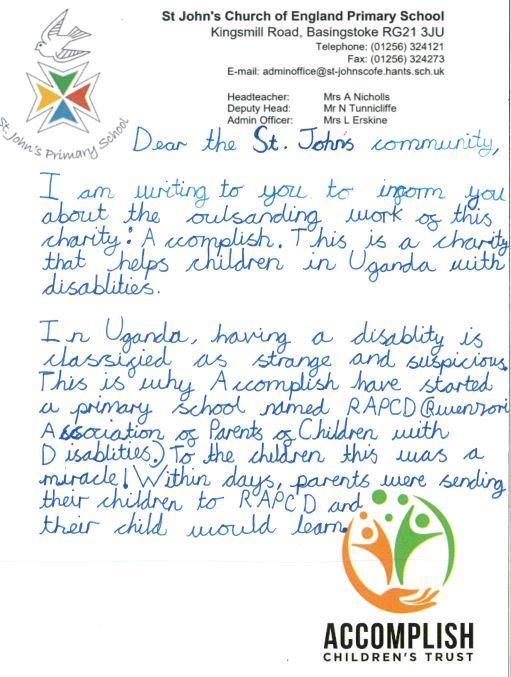 St John's Church of England Primary School
Kingsmill Road, Basingstoke RG21 3JU
Telephone: (01256) 324121
Fax: (01256) 324273
E-mail: adminoffice@st-johnscofe.hants.sch.uk
Headteacher: Mrs A Nicholls
Deputy Head: Mr N Tunnicliffe
Admin Officer: Mrs L Erskine
St. John's Primary School
Dear the St. John's community,
I am writing to you to inform you
about the oulsanding work of this
charity: Accomplish. This is a charity
that helps children in Uganda with
disablities.
In Uganda, having a disablity is
classified as strange and suspicious.
This is why Accomplish have started
a primary school named RAPCD (Rwenzori
Association of Parents of Children with
Disablities.) To the children this was a
miracle! Within days, parents were sending
their children to RAPCD and
their child would learn.
ACCOMPLISH
CHILDREN'S TRUST